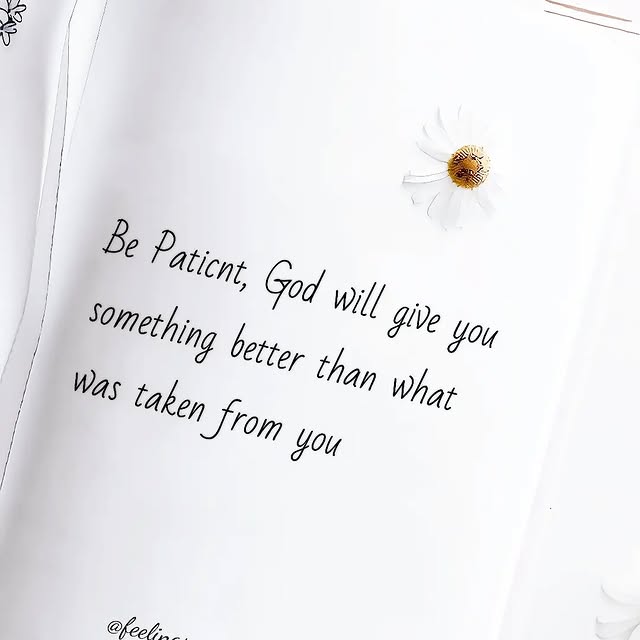 Be Patient, God will give you
something better than what
was taken from you